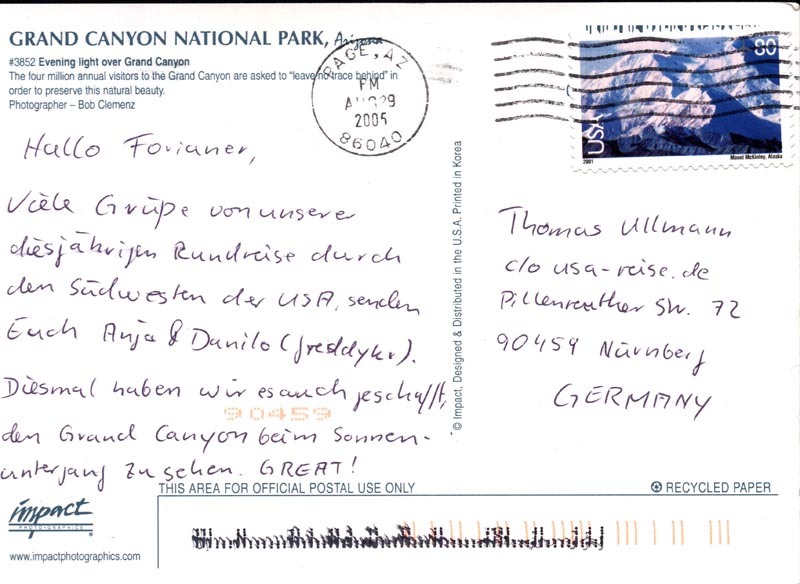 GRAND CANYON NATIONAL PARK, Arizona
#3852 Evening light over Grand Canyon
The four million annual visitors to the Grand Canyon are asked to "leave no trace behind" in
order to preserve this natural beauty.
Photographer – Bob Clemenz
PAGE, AZ
PM
AUG 29
2005
86040
80
USA
2001
Mount McKinley, Alaska
Hallo Forianer,
Viele Grüße von unserer
diesjährigen Rundreise durch
den Südwesten der USA, senden
Euch Anja & Danilo (freddykr).
Diesmal haben wir es auch geschafft,
den Grand Canyon beim Sonnen-
untergang zu sehen. GREAT!
90459
© Impact, Designed & Distributed in the U.S.A. Printed in Korea
Thomas Ullmann
c/o usa-reise.de
Pillenreuther Str. 72
90459 Nürnberg
GERMANY
THIS AREA FOR OFFICIAL POSTAL USE ONLY
RECYCLED PAPER
impact
PHOTO-GRAPHICS
www.impactphotographics.com